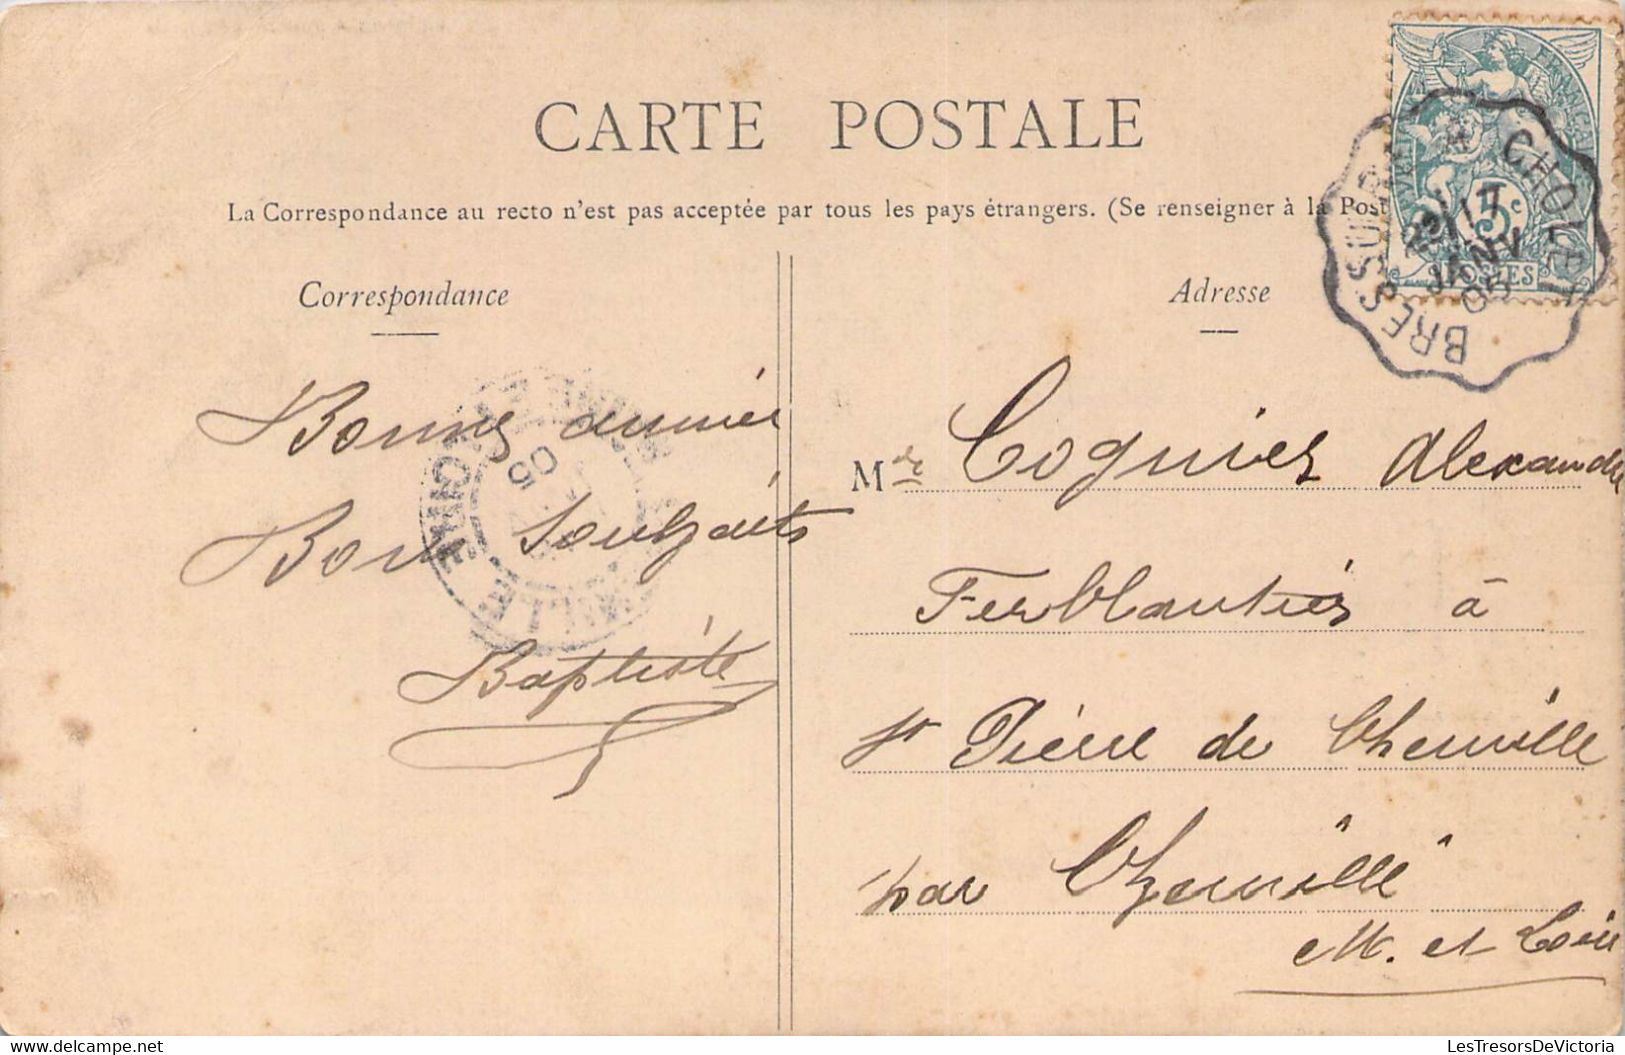 CARTE POSTALE
La Correspondance au recto n'est pas acceptée par tous les pays étrangers. (Se renseigner à la Post
Correspondance
Adresse
BRESSUIRE A CHOLET
17
JANV
05
5c
POSTES
Bonne année
Bons Souhaits
Baptiste
05
Mr Cogniez Alexandre
Ferblantier à
St Pierre de Chemillé
par Chemillé
M. et Loire
LesTresorsDeVictoria